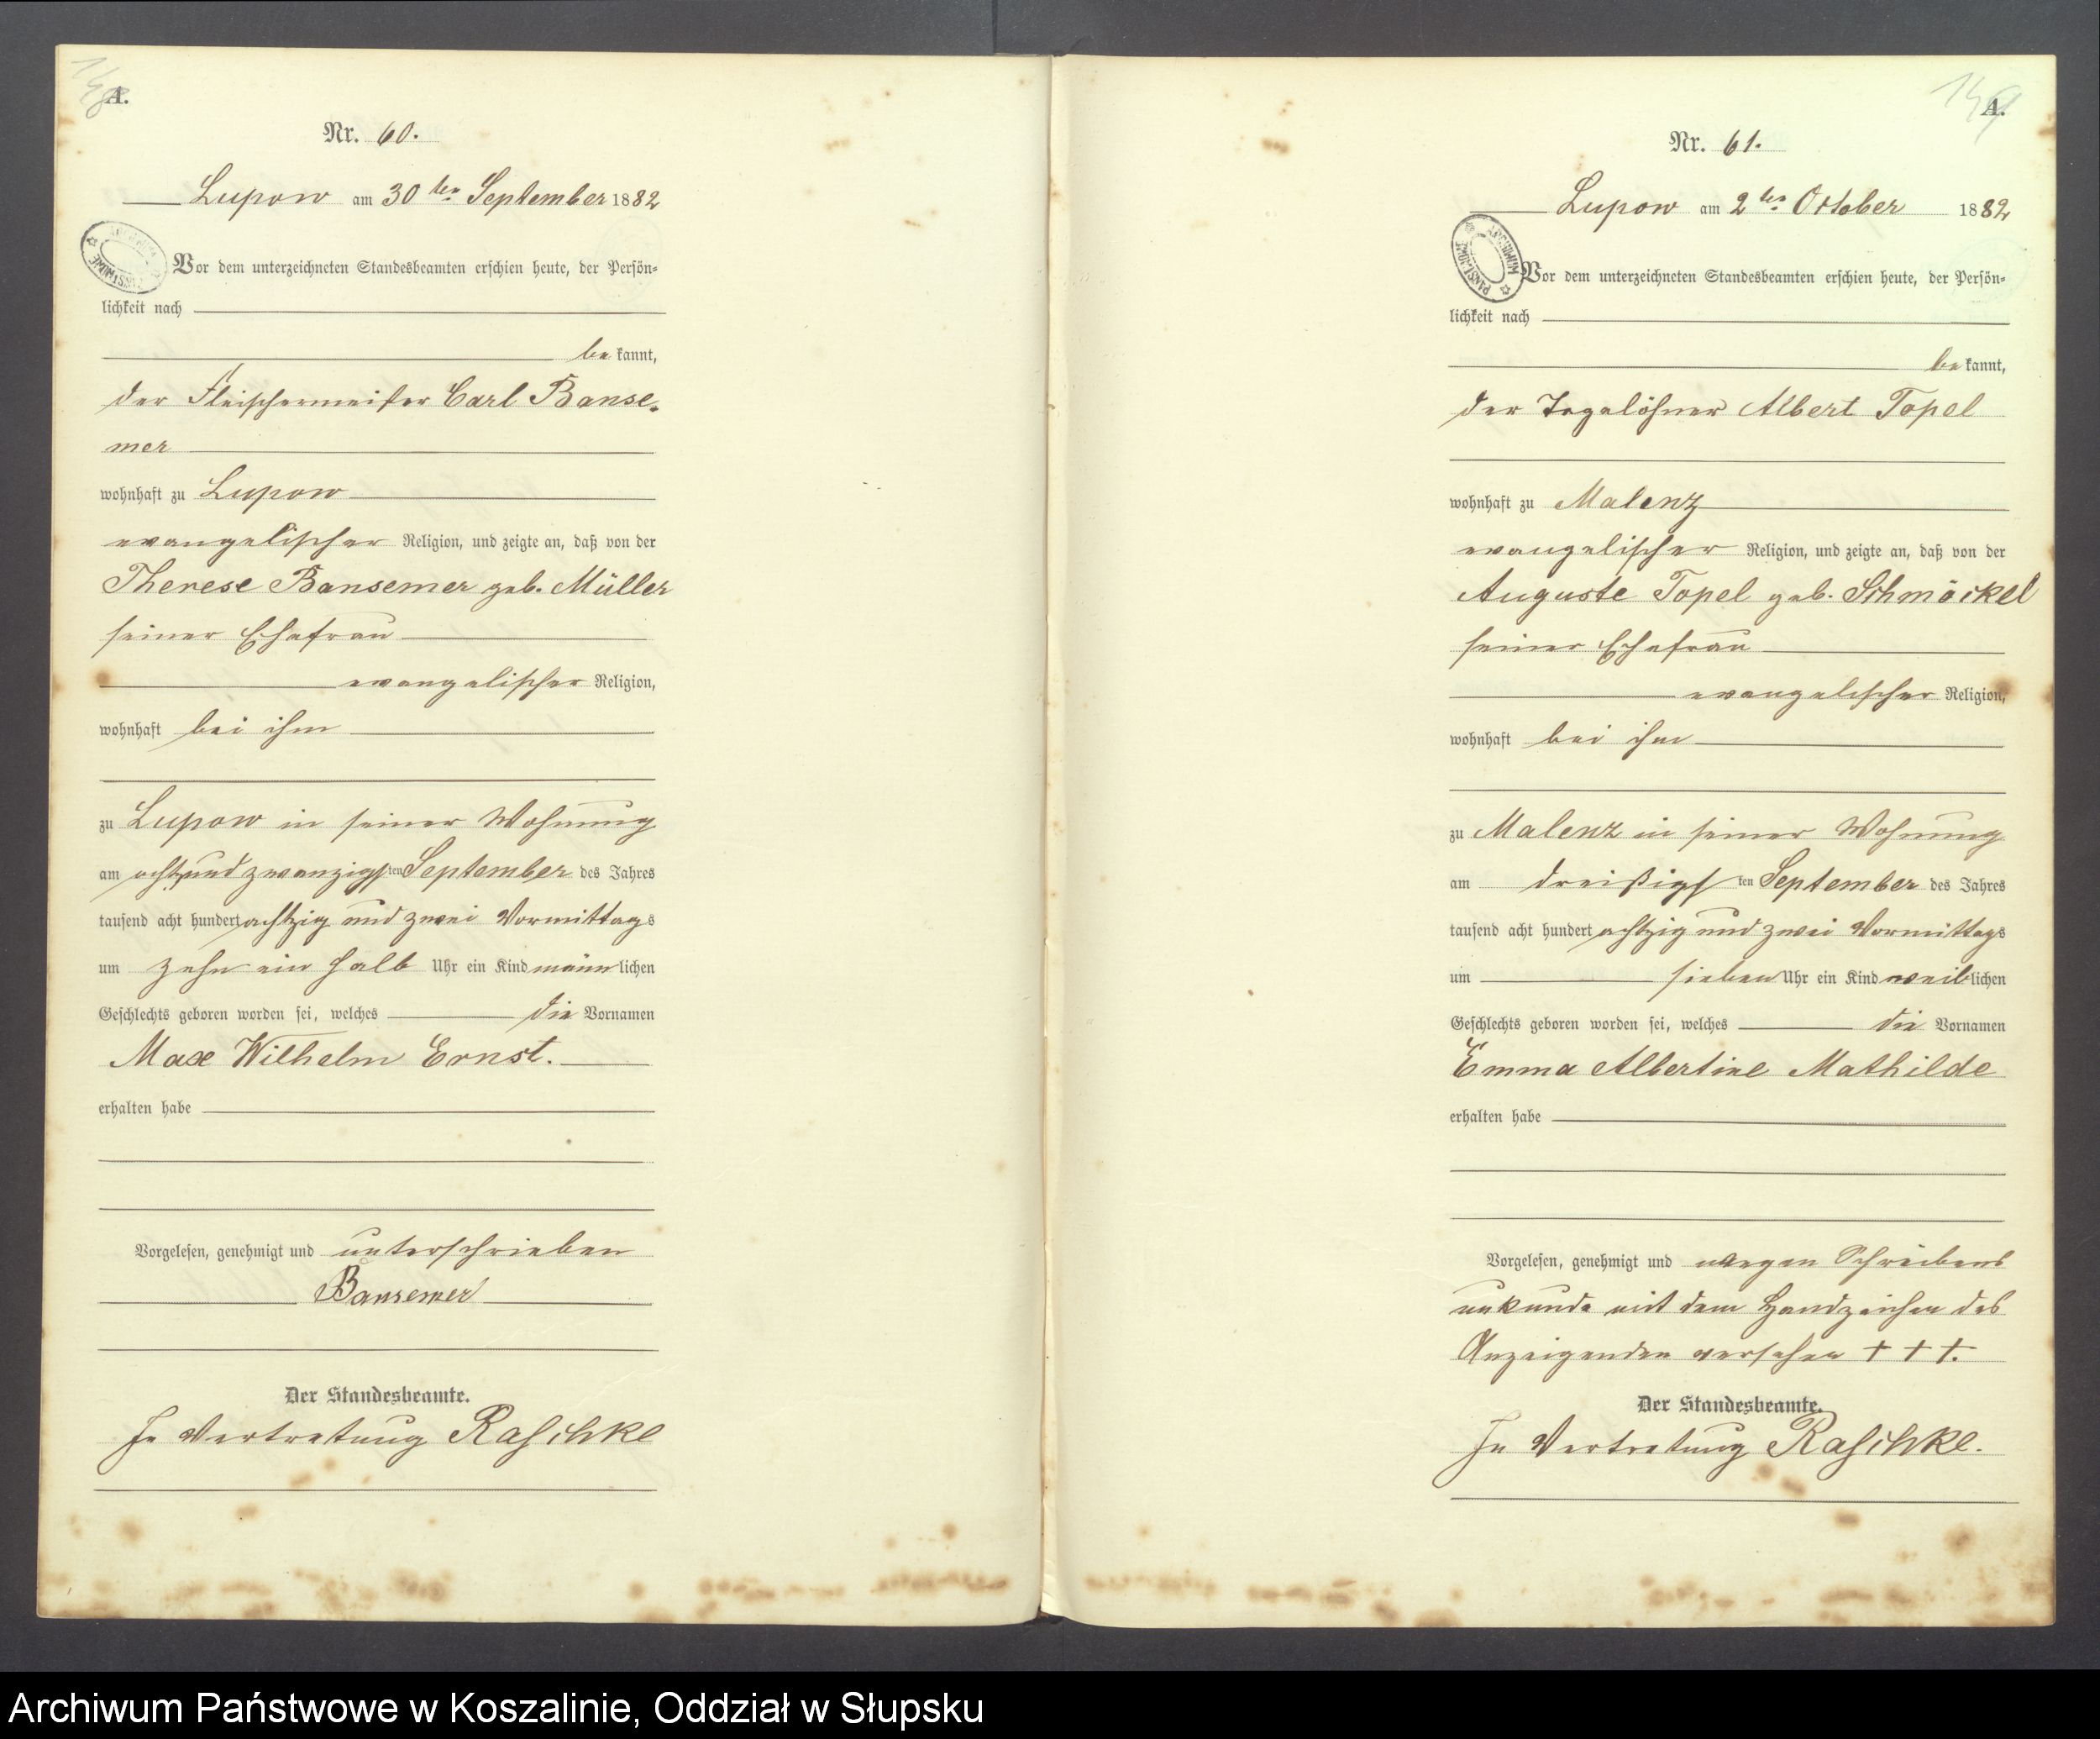 A.
Nr. 60.
Lupow am 30ten September 1882
Vor dem unterzeichneten Standesbeamten erschien heute, der Persön=
lichkeit nach
be kannt,
der Fleischermeister Carl Banse=
mer
wohnhaft zu Lupow
evangelischer Religion, und zeigte an, daß von der
Therese Bansemer geb. Müller
seiner Ehefrau
evangelischer Religion,
wohnhaft bei ihm
zu Lupow in seiner Wohnung
am acht und zwanzigsten September des Jahres
tausend acht hundert achtzig und zwei Vormittags
um zehn ein halb Uhr ein Kind männlichen
Geschlechts geboren worden sei, welches die Vornamen
Max Wilhelm Ernst.
erhalten habe
Vorgelesen, genehmigt und unterschrieben
Bansemer
Der Standesbeamte.
In Vertretung Raschke
149
A.
Nr. 61.
Lupow am 2ten October 1882
ARCHIWUM PAŃSTWOWE
Vor dem unterzeichneten Standesbeamten erschien heute, der Persön=
lichkeit nach
be kannt,
der Tagelöhner Albert Topel
wohnhaft zu Malenz
evangelischer Religion, und zeigte an, daß von der
Auguste Topel geb. Schmöckel
seiner Ehefrau
evangelischer Religion,
wohnhaft bei ihm
zu Malenz in seiner Wohnung
am dreißigsten September des Jahres
tausend acht hundert achtzig und zwei Vormittags
um sieben Uhr ein Kind weiblichen
Geschlechts geboren worden sei, welches die Vornamen
Emma Albertine Mathilde
erhalten habe
Vorgelesen, genehmigt und wegen Schreibens
unkunde mit dem Handzeichen des
Anzeigenden versehen + + +.
Der Standesbeamte.
In Vertretung Raschke.
Archiwum Państwowe w Koszalinie, Oddział w Słupsku